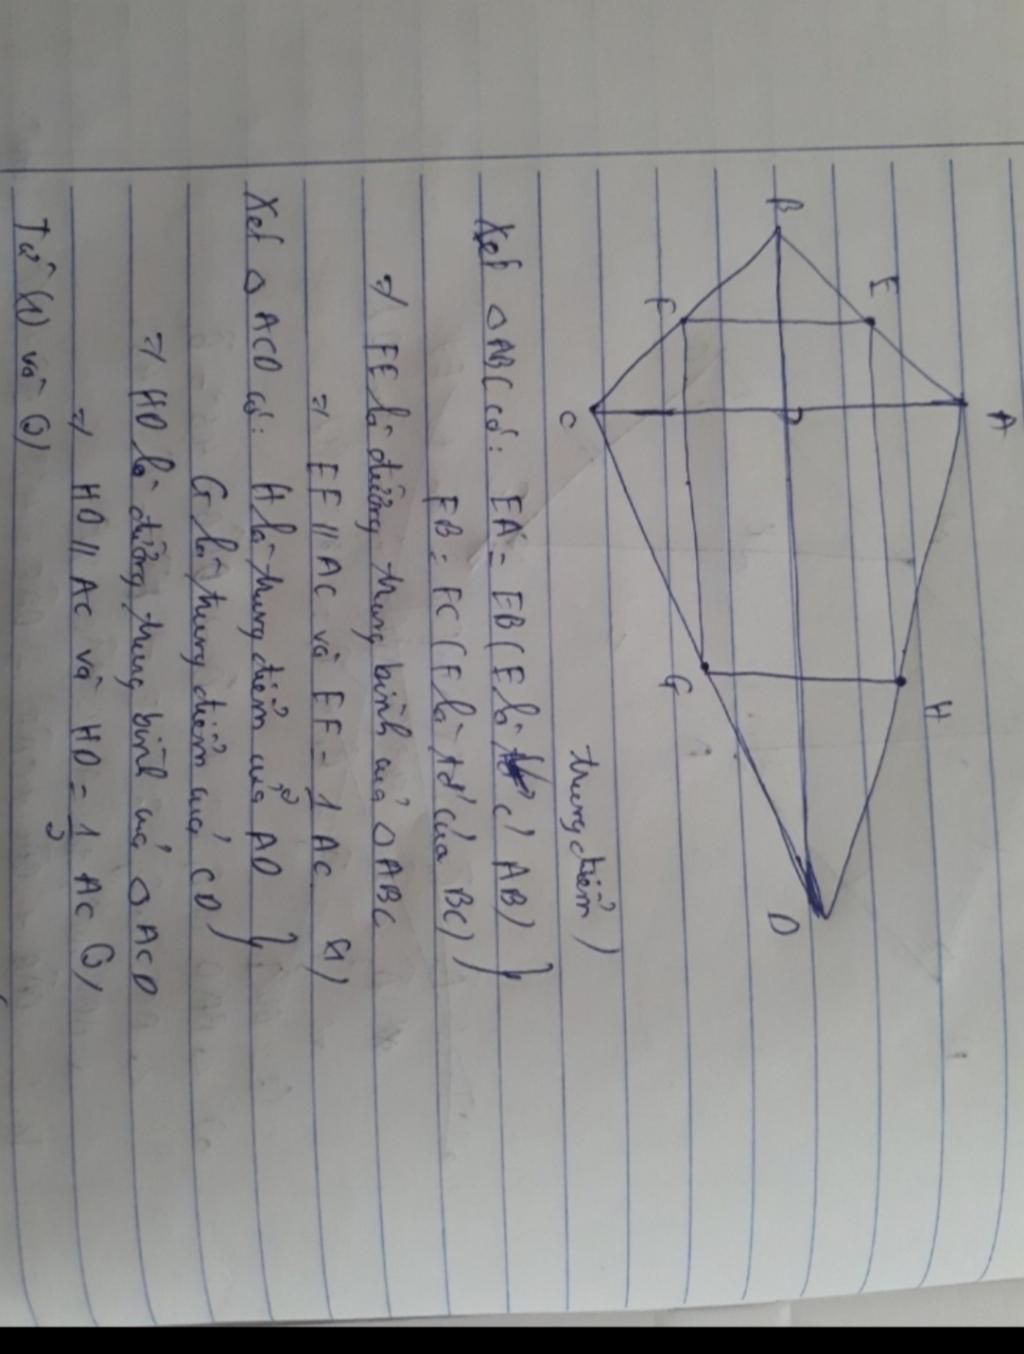 A
B
E
H
F
C
G
D
trung điểm)
Xét △ABC có: EA = EB (E là t/đ c/ AB) }
FB = FC (F là tđ của BC) }
=> FE là đường trung bình của △ABC
=> EF // AC và EF = 1 AC (1)
Xét △ACD có: H là trung điểm của AD }
G là trung điểm của CD }
=> HD là đường trung bình của △ACD
=> HD // AC và HD = 1/2 AC (2)
Từ (1) và (2)